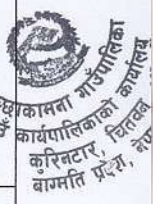 इच्छाकामना गाउँपालिका
गाउँ कार्यपालिकाको कार्यालय
कुरिनटार, चितवन
बागमति प्रदेश, नेपाल